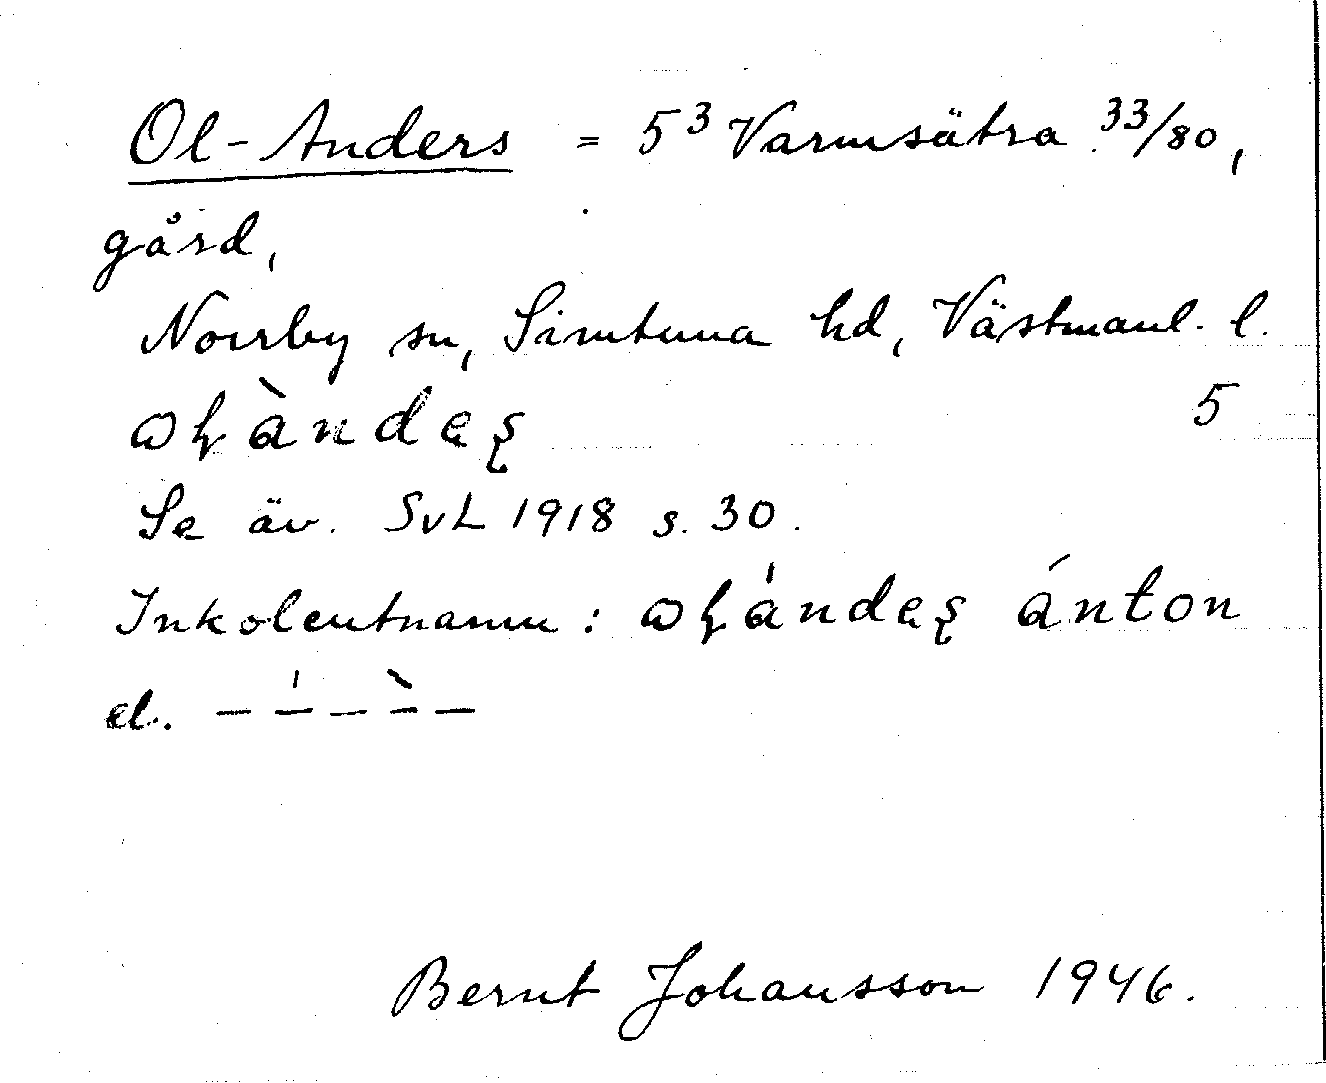 Ol-Anders = 5³ Varmsätra 33/80,
gård,
Norrby sn, Simtuna hd, Västmanl. l.
5
Se äv. SvL 1918 s. 30.
Inkolentnamn:
el. — –́ — –̀ —
Bernt Johansson 1946.